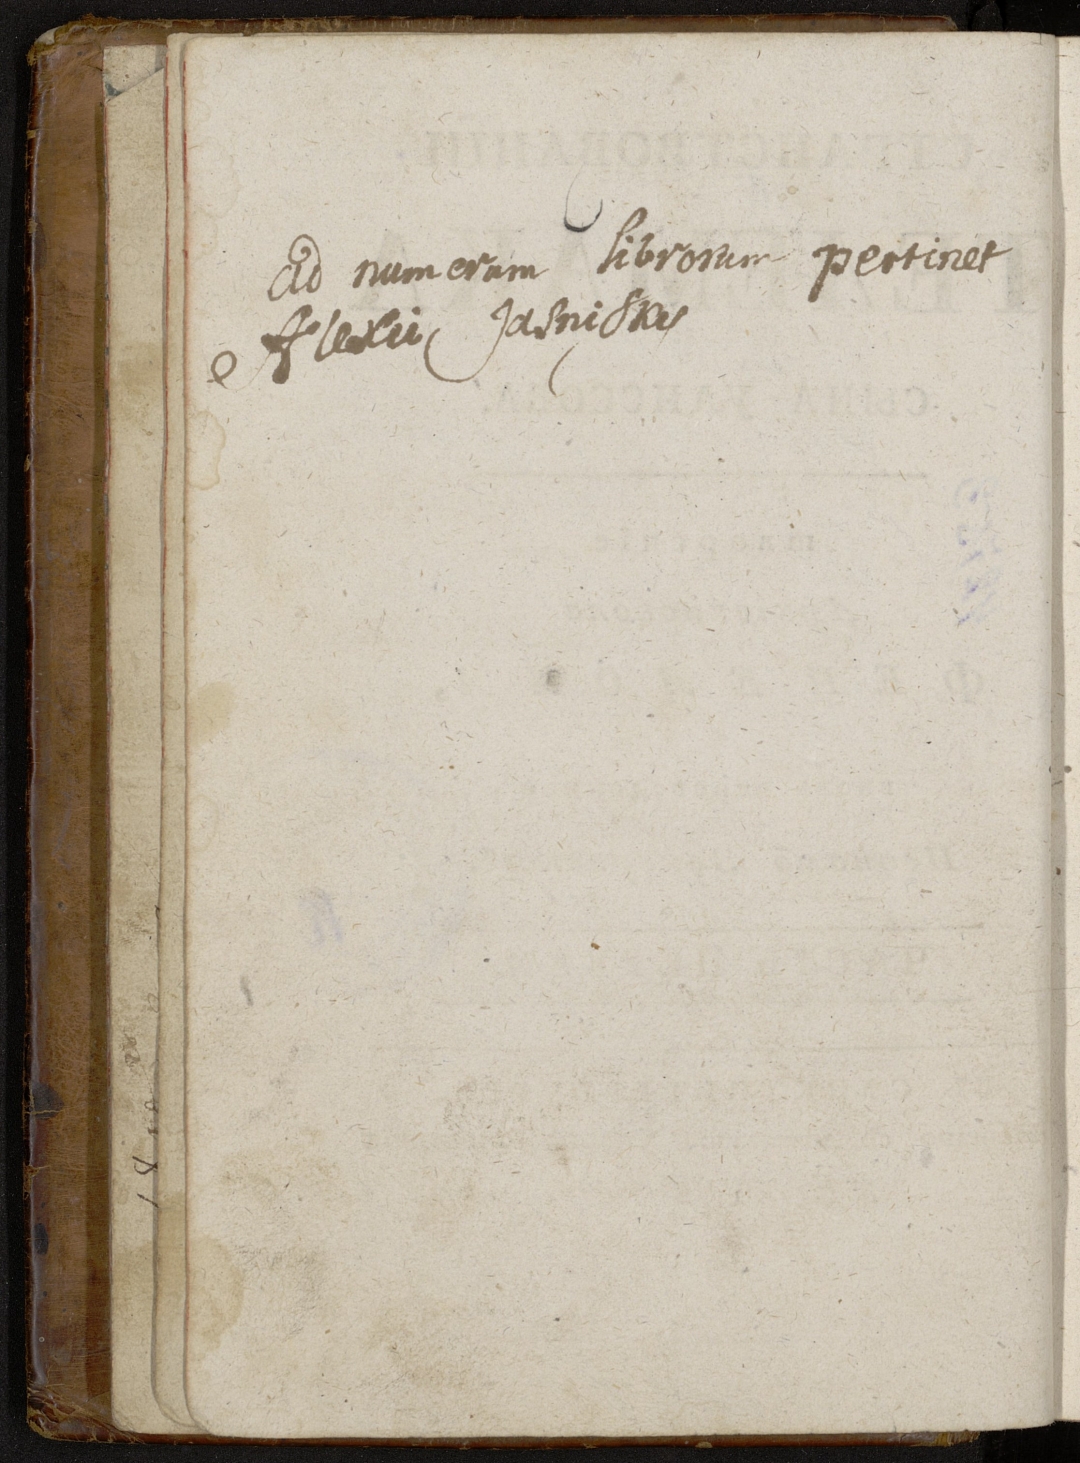 ad numerum librorum pertinet
Alexii Jasnisky